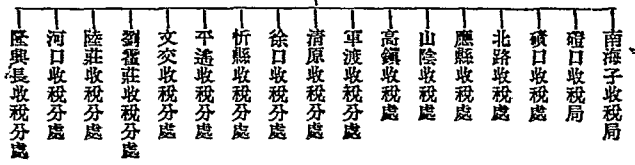 南海子收稅局
磴口收稅局
磧口收稅處
北路收稅處
應縣收稅處
山陰收稅處
高鎮收稅處
軍渡收稅分處
清原收稅分處
徐口收稅分處
忻縣收稅分處
平遙收稅分處
文交收稅分處
收稅分處
陸莊收稅分處
河口收稅分處
隆興長收稅分處